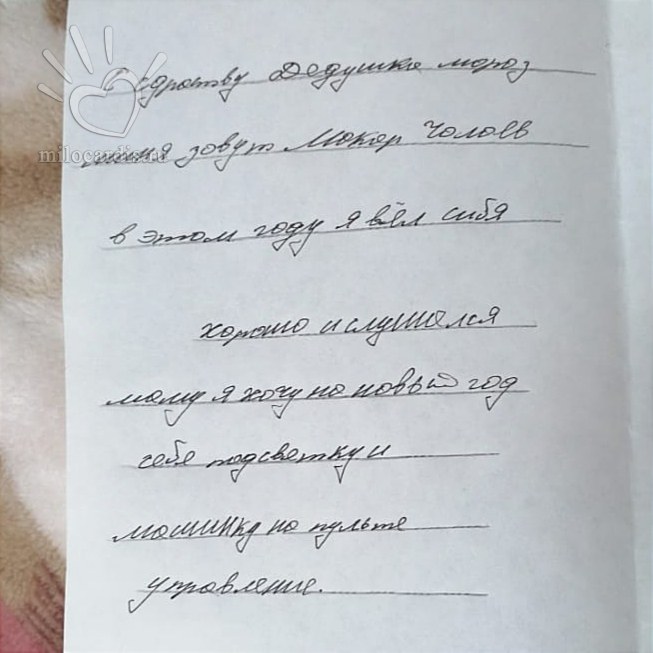 Здраству Дедушка мороз
milocardis.ru
меня зовут Макар Чалаев
в этом году я вёл сибя
хорошо и слушался
маму я хочу на новый год
себе подсветку и
машинку на пульте
управление.